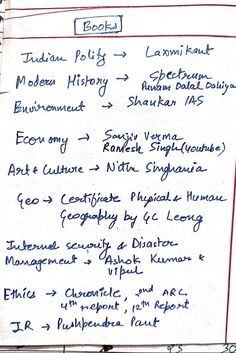 Books
Indian Polity → Laxmikant
Modern History → Spectrum
Punam Dalal Dahiya
Environment → Shankar IAS
Economy → Sanjiv Verma
Ramesh Singh (youtube)
Art & Culture → Nitin Singhania
Geo → Certificate Physical & Human
Geography by GC Leong
Internal security & Disaster
Management → Ashok Kumar &
Vipul
Ethics → Chronicle, 2nd ARC
4th report, 12th Report
I.R → Pushpendra Pant